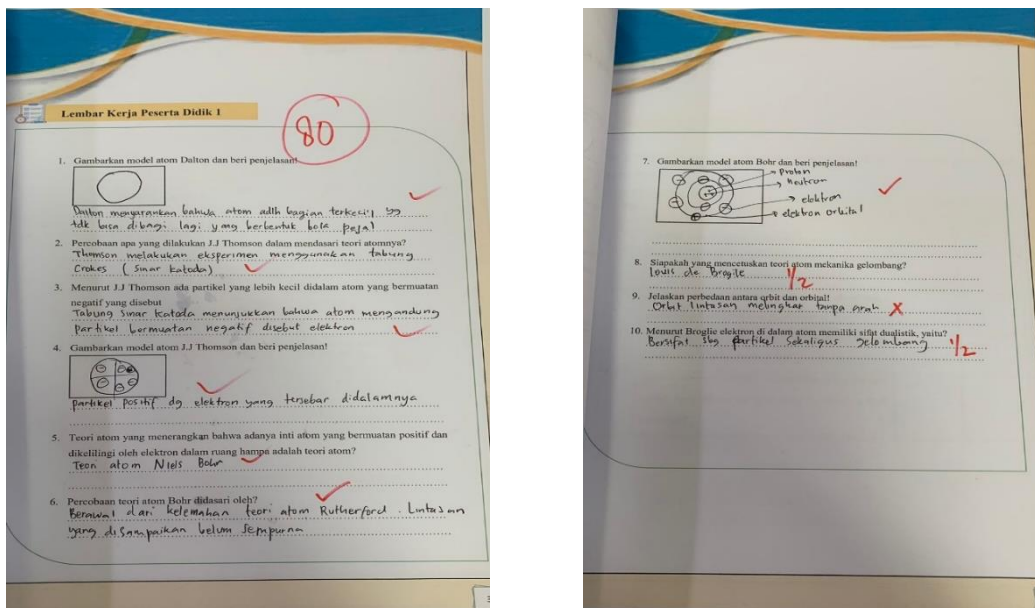 Lembar Kerja Peserta Didik 1
80
1. Gambarkan model atom Dalton dan beri penjelasan!
Dalton menyarankan bahwa atom adlh bagian terkecil yg
tdk bisa dibagi lagi yang berbentuk bola pejal
2. Percobaan apa yang dilakukan J.J Thomson dalam mendasari teori atomnya?
Thomson melakukan eksperimen menggunakan tabung
Crokes ( Sinar katoda)
3. Menurut J.J Thomson ada partikel yang lebih kecil didalam atom yang bermuatan
negatif yang disebut
Tabung Sinar katoda menunjukkan bahwa atom mengandung
Partikel bermuatan negatif disebut elektron
4. Gambarkan model atom J.J Thomson dan beri penjelasan!
partikel positif dg elektron yang tersebar didalamnya
5. Teori atom yang menerangkan bahwa adanya inti atom yang bermuatan positif dan
dikelilingi oleh elektron dalam ruang hampa adalah teori atom?
Teori atom Niels Bohr
6. Percobaan teori atom Bohr didasari oleh?
Berawal dari kelemahan teori atom Rutherford. Lintasan
yang disampaikan belum sempurna
7. Gambarkan model atom Bohr dan beri penjelasan!
Proton
Neutron
elektron
elektron orbital
8. Siapakah yang mencetuskan teori atom mekanika gelombang?
Louis de Brogile
1/2
9. Jelaskan perbedaan antara orbit dan orbital!
Orbit lintasan melingkar tanpa arah
X
10. Menurut Broglie elektron di dalam atom memiliki sifat dualistik, yaitu?
Bersifat sbg partikel Sekaligus gelombang
1/2